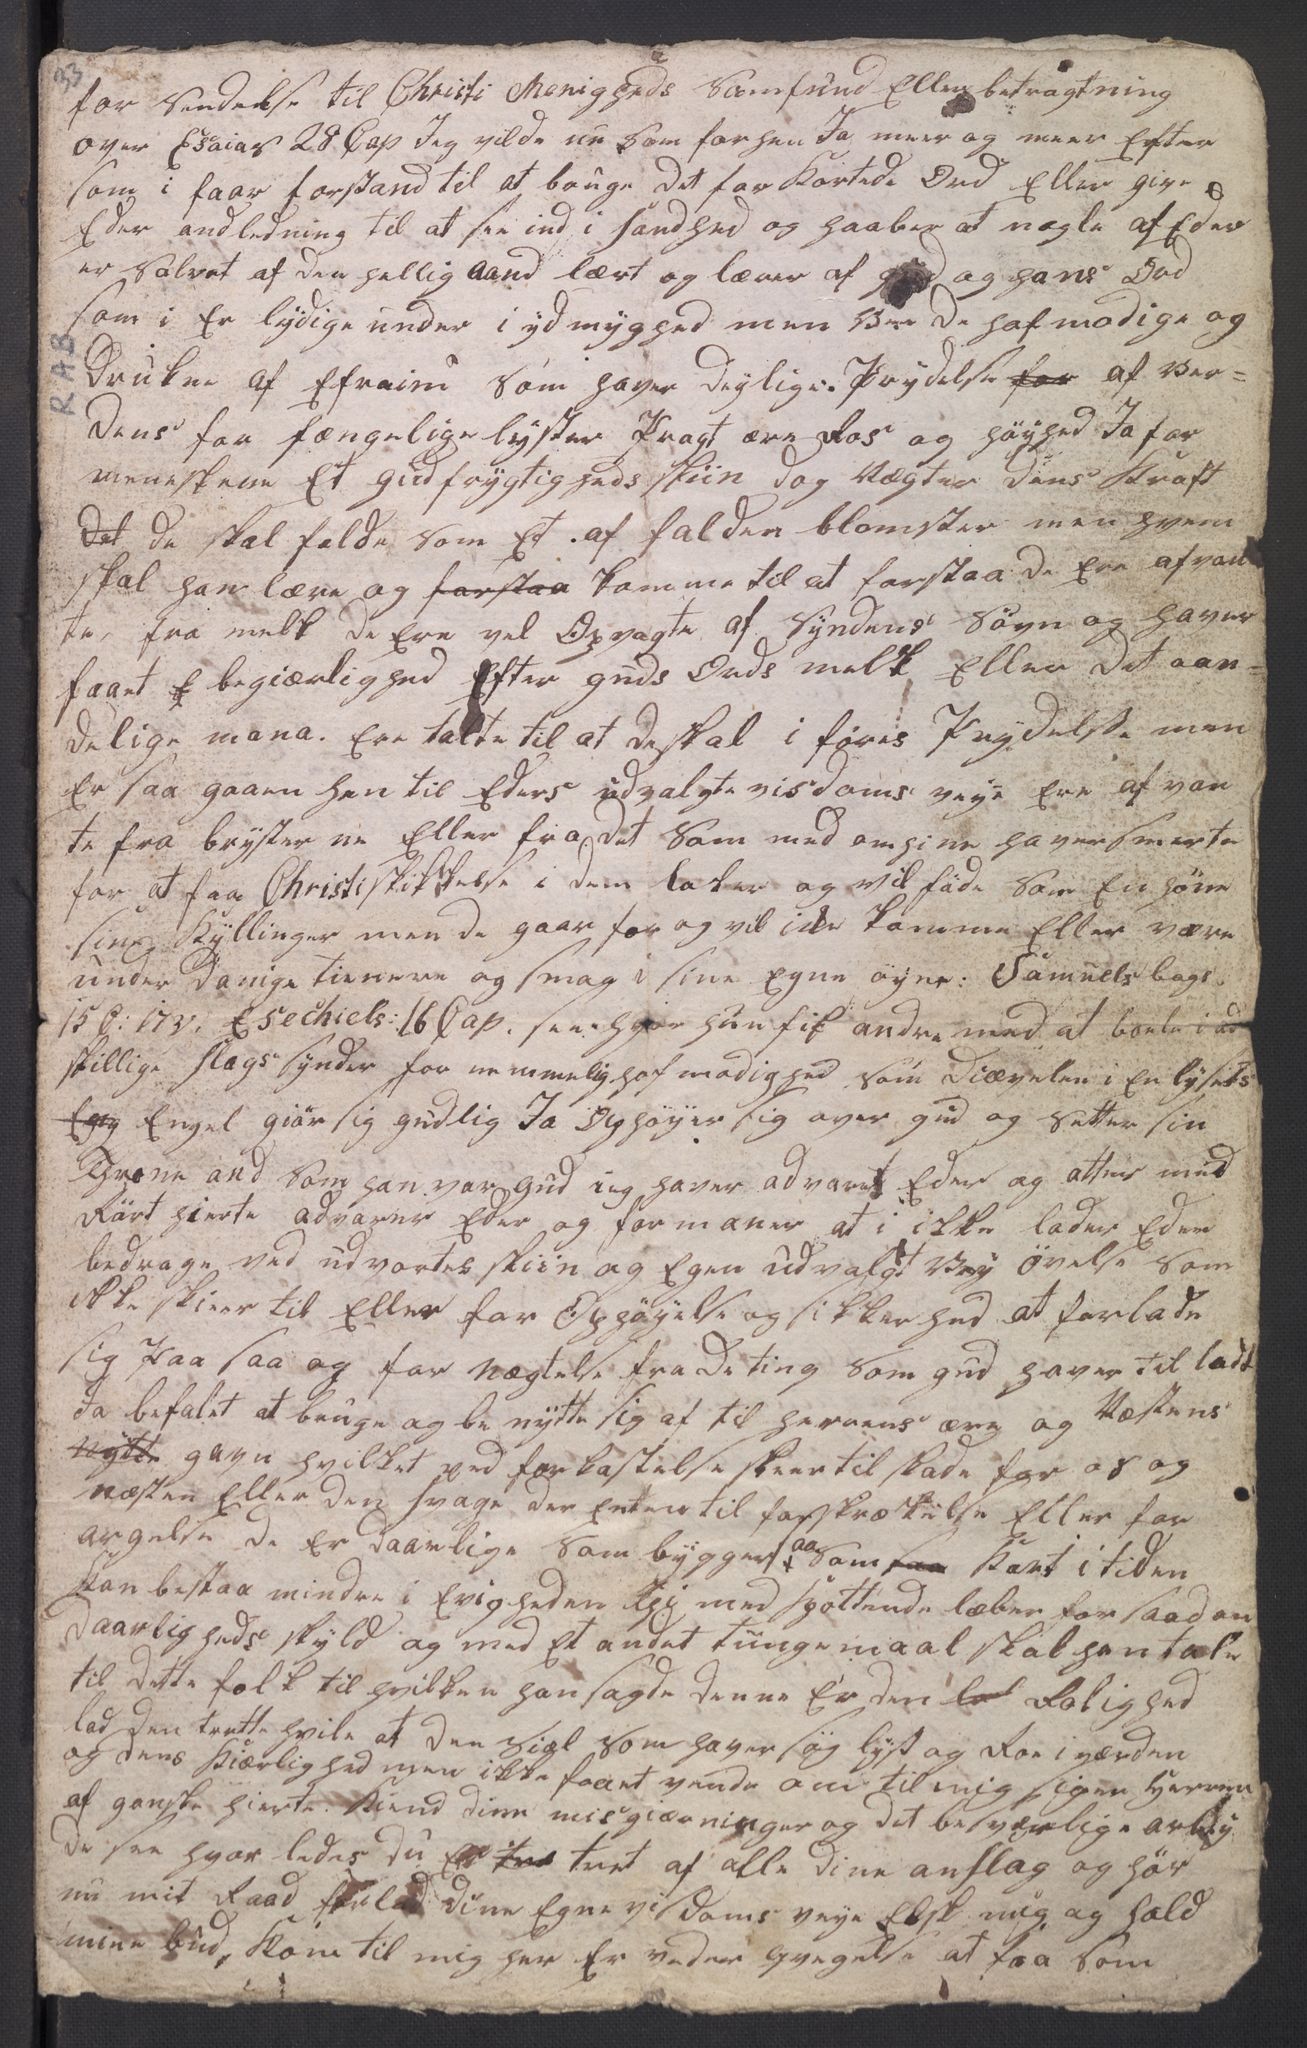 33
for Sendelse til Christi Menigheds Samfund Eller betragtning
over Esaias 28 Cap Jeg vilde nu Som forhen Ja meer og meer Efter
som i faar forstand til at bruge Det for Kortede Ord Eller give
Eder andledning til at see ind i sandhed og haaber at nogle af Eder
er Salvet af den hellig aand lært og lærer af gud og hans Ord
som i Er lydige under i ydmyghed men Vee De hofmodige og
Drukne af Efraim Som haver deylige Prydelse for af Ver=
dens for fængelige lyster Pragt ære Roes og höyhed Ja for
meneskene Et gudfrygtigheds skiin dog Nægter dens Kraft
Det de skal falde Som Et af falden blomster men hvem
skal han lære og forstaa komme til at forstaa de Ere afvan
te fra melk de Ere vel Opvagte af Syndens Sövn og haver
faaet E begiærlighed Efter guds Ords melk Eller Det aan=
delige mana. Ere kalte til at de skal i föres Prydelse men
Er saa gaaen hen til Eders udvalgte visdoms veye Ere af van
te fra brysterne Eller fra det Som med omhine haver Smerte
for at faa Christi skikkelse i dem laker og vil föde Som En höne
sine Kyllinger men de gaar for og vil icke komme Eller være
under danige tienere og smaa i sine Egne öyne: Samuels bogs
15 C: 17 v. Esechiels: 16 Cap. see hvor hun fik andre med at boele i ad
skillige slags synder for nemmelig hofmodighed som diævelen i En lysets
Eng Engel giör sig gudlig Ja Ophöyer sig over gud og Setter sin
Throne and Som han var gud ieg haver advaret Eder og atter med
Rört hierte advarer Eder og formaner at i ikke lader Eder
bedrage ved udvortes skiin og Egen udvalgt Vey övelse Som
ikke skeer til Eller for Ophöyelse og sikkerhed at forlade
sig Paa saa og for Nægtelse fra de ting Som gud haver til ladt
Ja befalet at bruge og be nytte sig af til herrens ære og Næstens
nytte gavn hvilket ved forkastelse skeer til skade for os og
næsten Eller den svage der Enten til forskrækkelse Eller for
argelse de Er daarlige Som bygger paa Som saa Kort i tiden
kan bestaa mindre i Evigheden thi med spottende læber for saadan
daarligheds skyld og med Et andet tungemaal skal han tale
til dette folk til hvilken han sagde denne Er den lad Rolighed
lad den trette hvile at den Siel Som haver søg lyst og Roe i verden
og dens Kiærlighed men ikke faaet vende om til mig siger Herren
af ganske hierte. Kiend dine misgiærninger og det besværlige arbey
de see hvor ledes du Er tret tret af alle dine anslag og hör
nu mit Raad forlad dine Egne visdoms veye Elsk mig og hold
mine bud. Kom til mig her Er veder qvegelse at faa Som
R A B